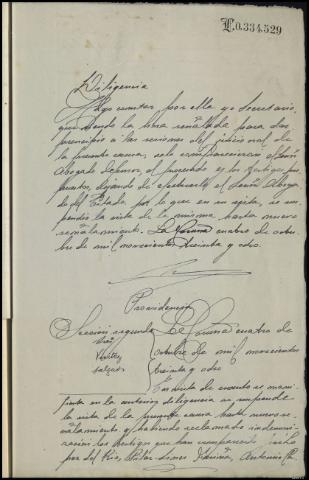 L.0.334.529
Diligencia
Hago constar por ella yo Secretario,
que siendo la hora señalada para dar
principio a las sesiones del juicio oral de
la presente causa, solo comparecieron el Señor
Abogado defensor, el procesado y los testigos pro-
puestos, dejando de efectuarlo el Señor Aboga-
do del Estado por lo que en su vista, se sus-
pendió la vista de la misma hasta nuevo
señalamiento. La Coruña cuatro de octu-
bre de mil novecientos treinta y ocho.
Providencia
Sección segunda La Coruña cuatro de
octubre de mil novecientos
treinta y ocho
En vista de cuanto se mani-
fiesta en la anterior diligencia se suspende
la vista de la presente causa hasta nuevo se-
ñalamiento y habiendo reclamado indemni-
zación los testigos que han comparecido
por del Río, Pilar Antonio